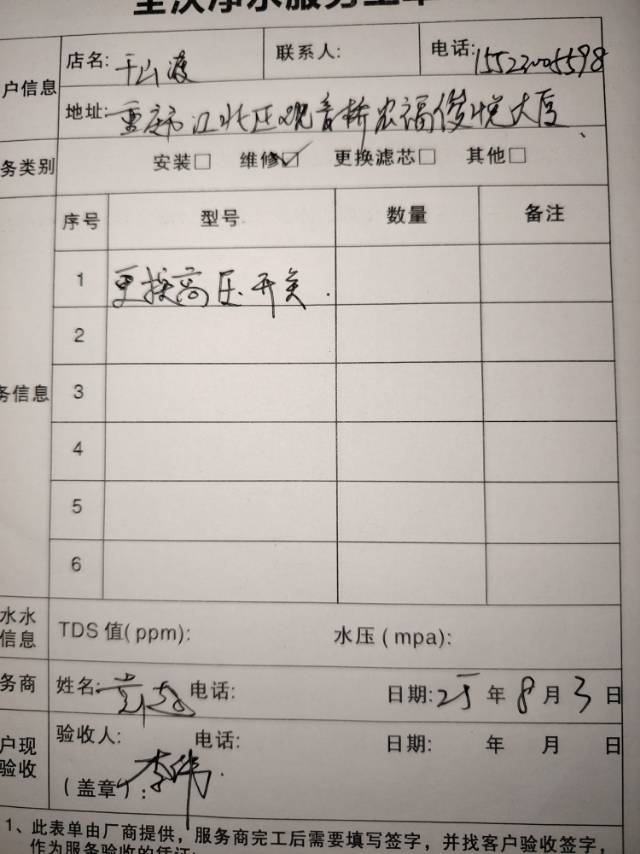 全沃净水服务工单
户信息 店名:千山渡 联系人: 电话:15523005598
地址:重庆市江北区观音桥农福俊悦大厦
务类别 安装□ 维修☑ 更换滤芯□ 其他□
序号 型号 数量 备注
1 更换高压开关.
2
务信息 3
4
5
6
水水
信息 TDS 值(ppm): 水压(mpa):
务商 姓名: 电话: 日期:25年8月3日
户现
验收 验收人: 电话: 日期: 年 月 日
(盖章): 李纬
1、此表单由厂商提供，服务商完工后需要填写签字，并找客户验收签字，
作为服务验收的凭证;